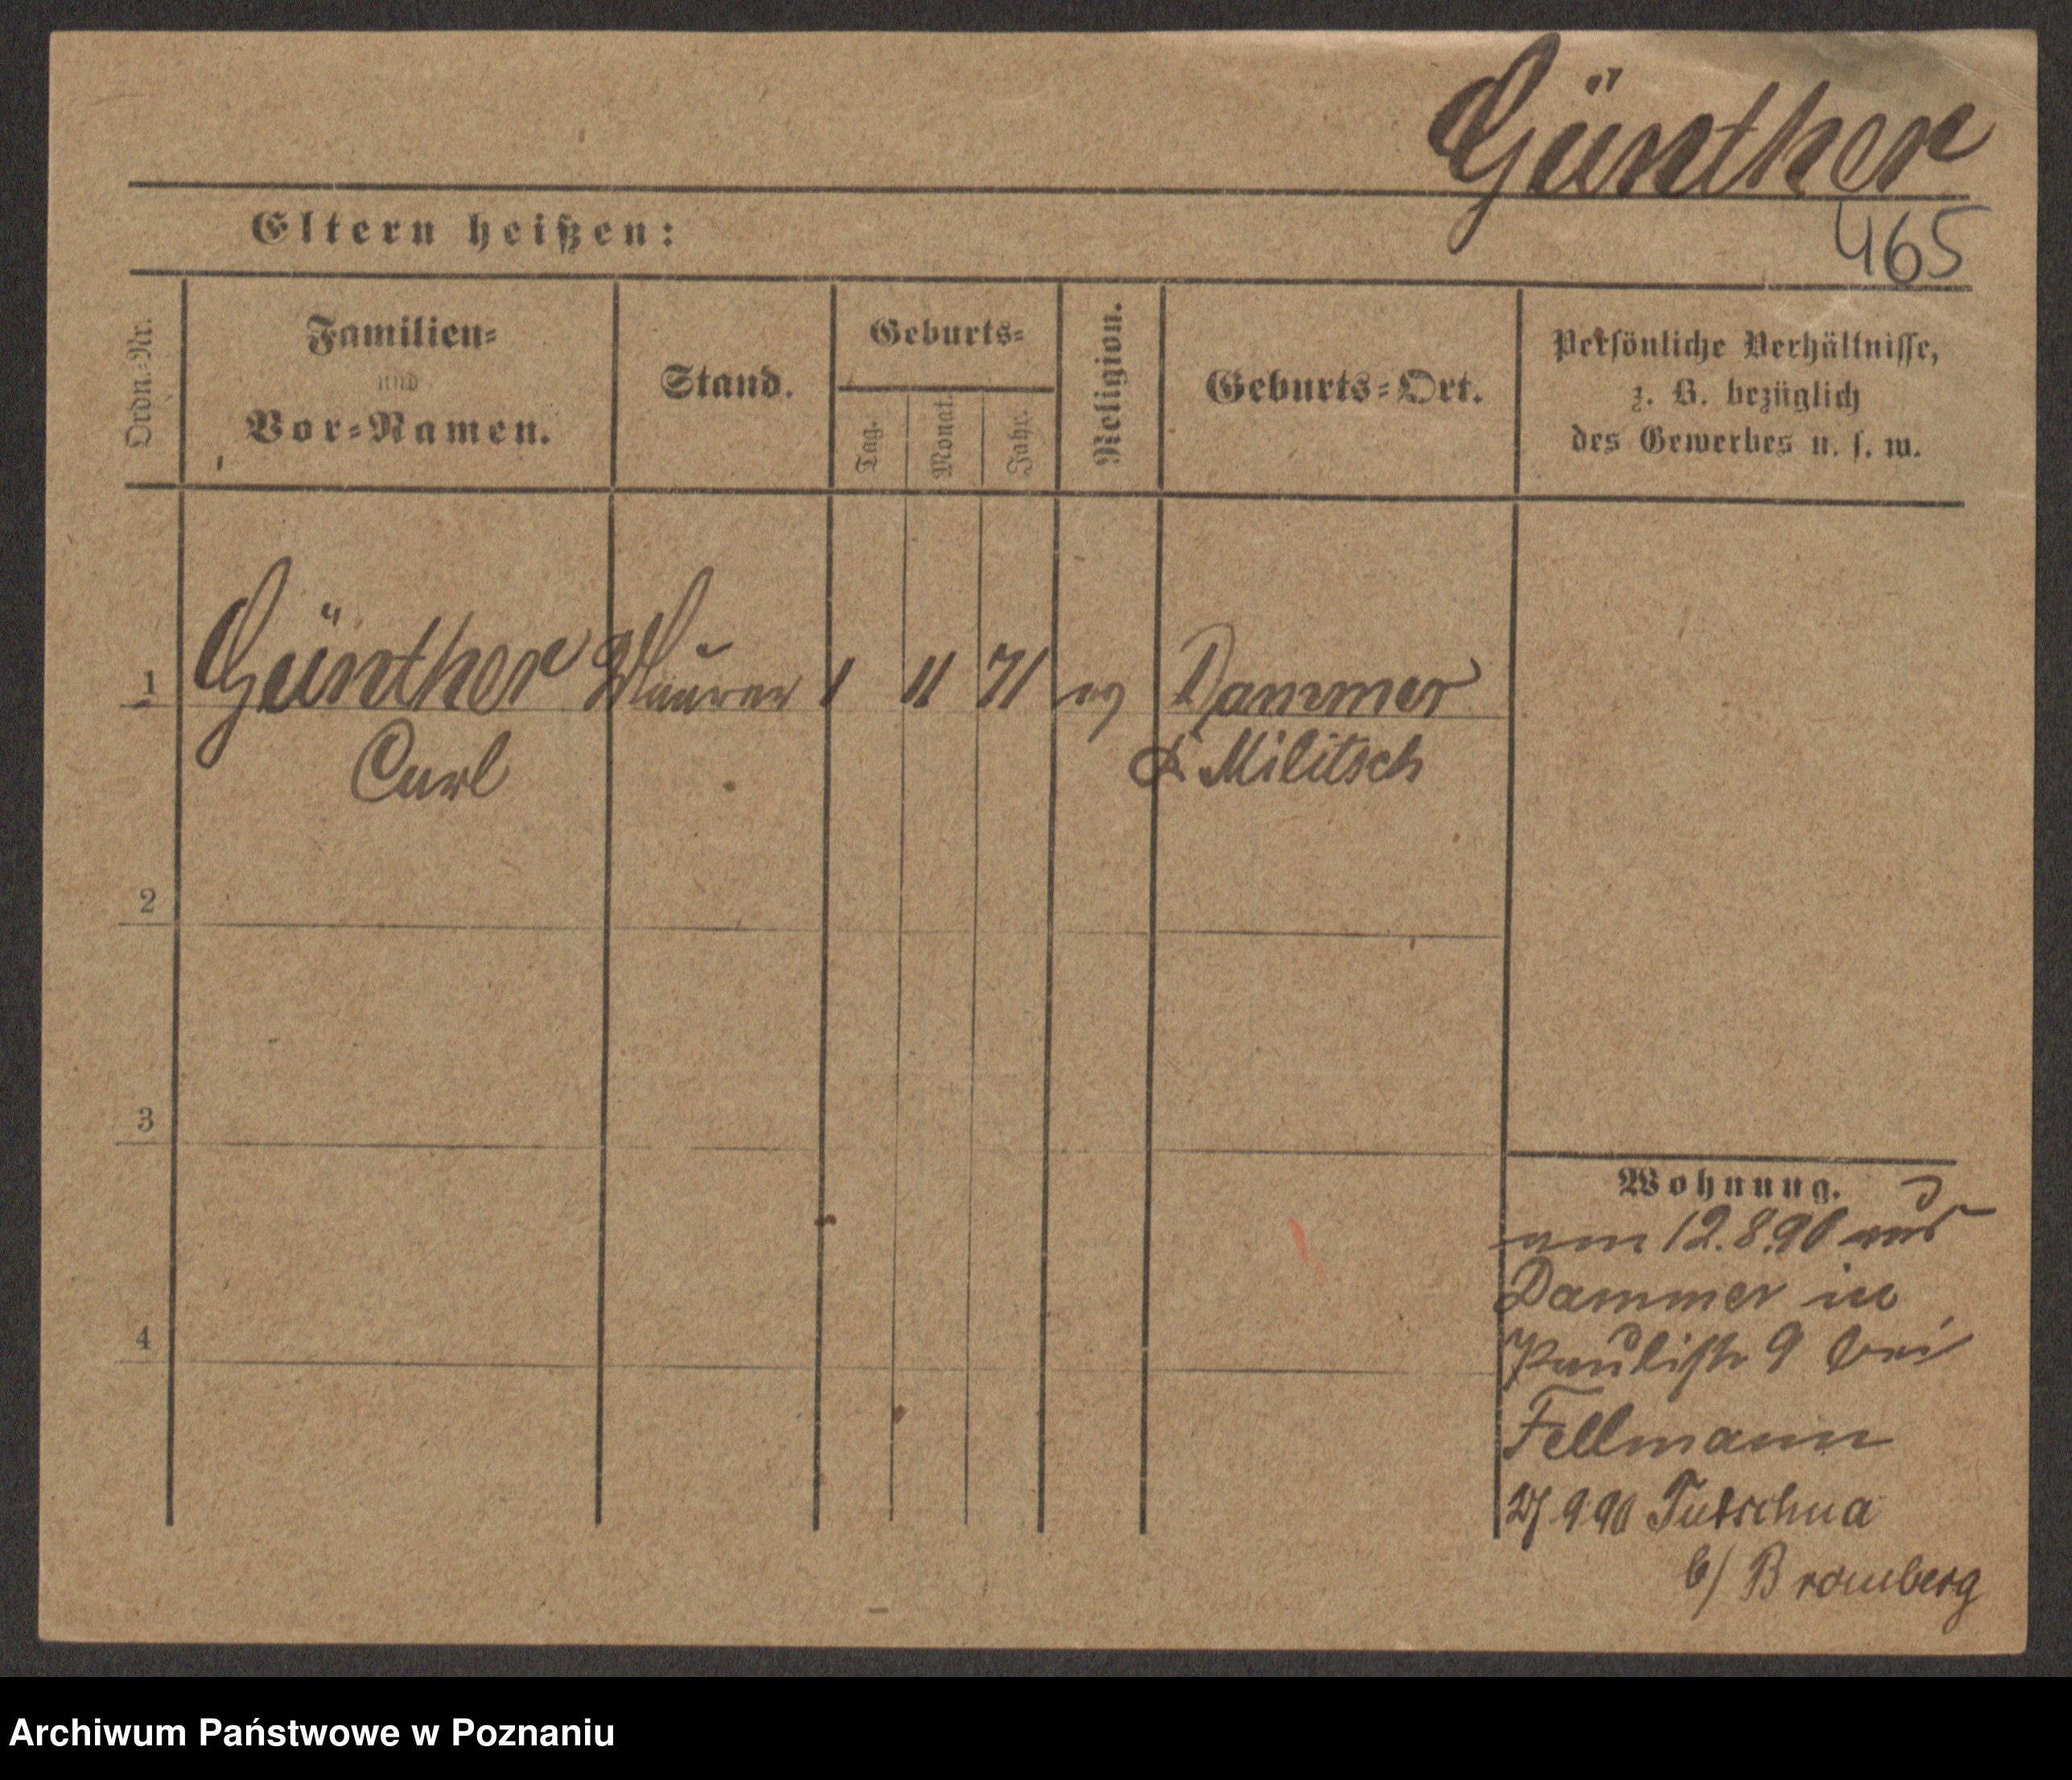 Günther
465
Eltern heißen:
Ordn.-Nr.
Familien-
und
Vor-Namen.
Stand.
Geburts-
Tag.
Monat.
Jahr.
Religion.
Geburts-Ort.
Persönliche Verhältnisse,
z. B. bezüglich
des Gewerbes u. s. w.
1 Günther Maurer 1 11 71 ev Dammer
Carl Militsch
2
3
4
Wohnung.
am 12.8.90 aus
Dammer in
Paulistr 9 bei
Fellmann
27 9 90
b/ Bromberg
Archiwum Państwowe w Poznaniu